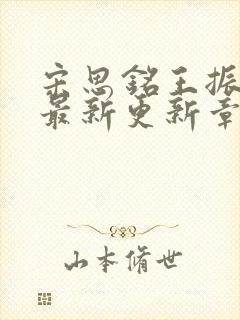 宋思铭王振
最新更新章
山本脩世